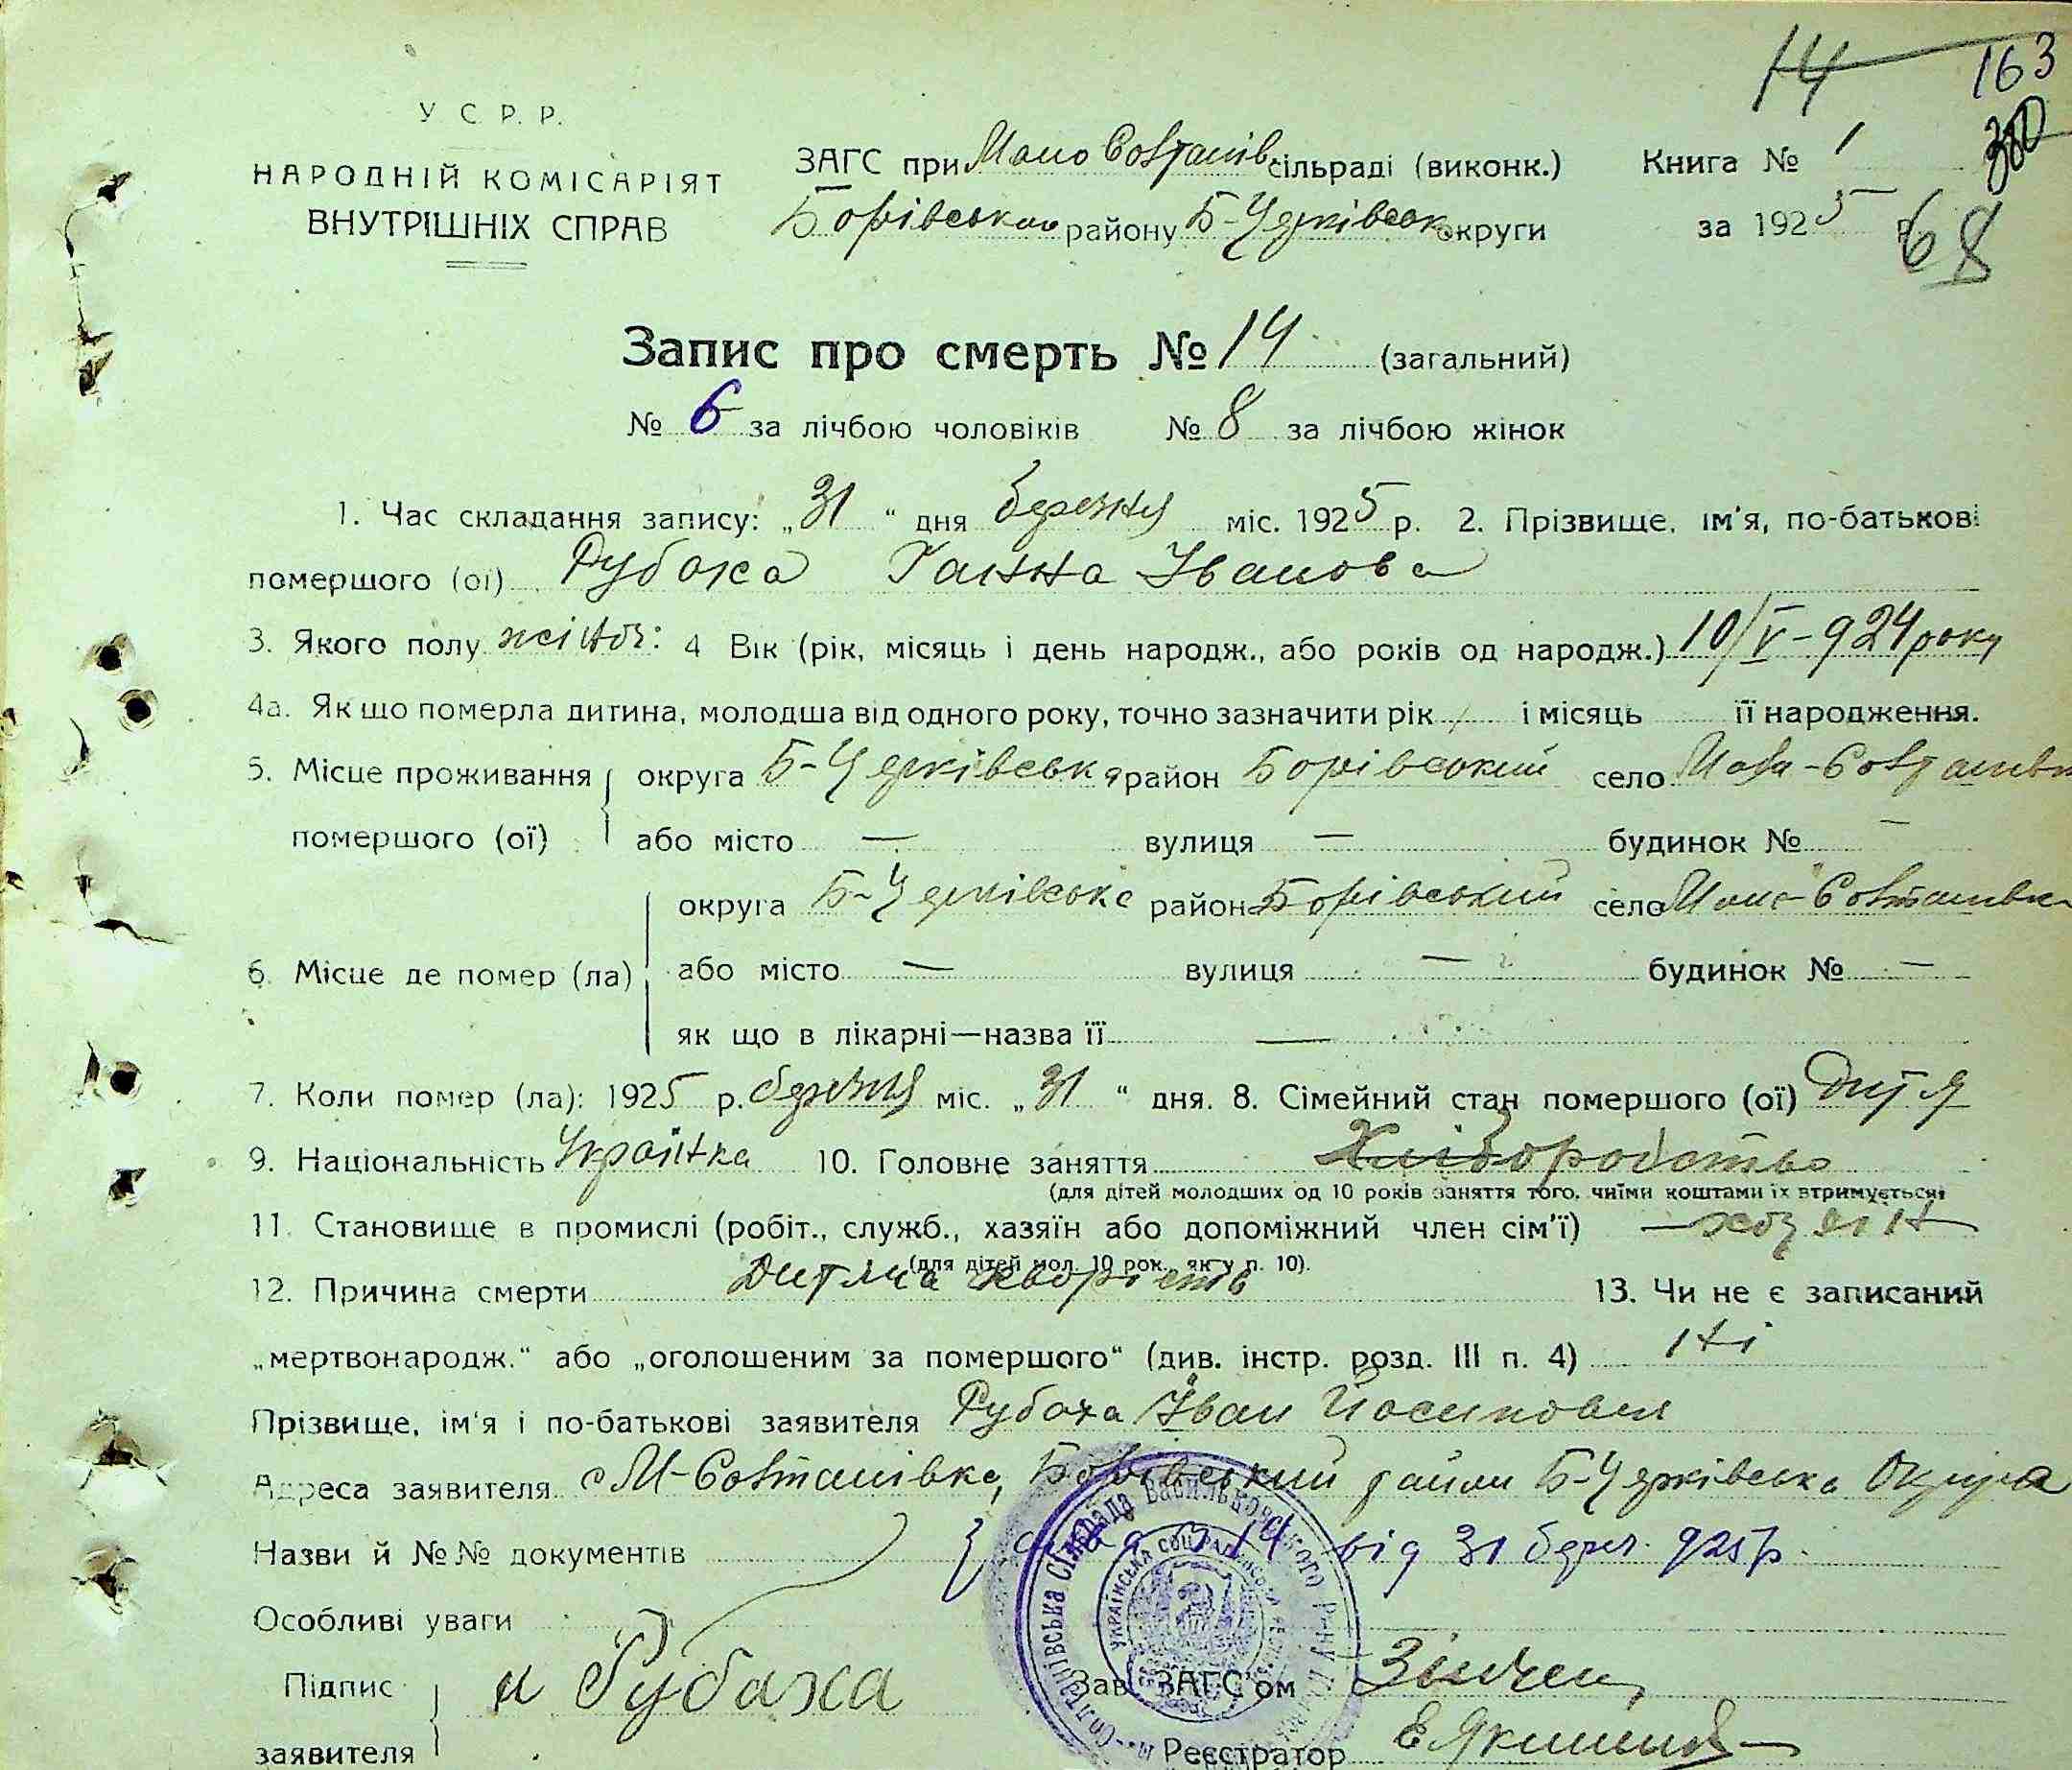 14 163
У С Р. Р.
НАРОДНІЙ КОМІСАРІЯТ
ВНУТРІШНІХ СПРАВ
ЗАГС при Мало Солтанів сільраді (виконк.) Книга № 1
300
Борівського району Б-Церківськ округи за 1925
68
Запис про смерть № 14 (загальний)
№ 6 за лічбою чоловіків № 8 за лічбою жінок
1. Час складання запису: „31“ дня березня міс. 1925 р. 2. Прізвище, ім'я, по-батькові
помершого (ої) Рубаха Ганна Іванова
3. Якого полу жіноч: 4 Вік (рік, місяць і день народж., або років од народж.) 10/V-924 року
4а. Як що померла дитина, молодша від одного року, точно зазначити рік і місяць її народження.
5. Місце проживання округа Б-Церківська район Борівський село Мала-Солтанівка
помершого (ої) або місто — вулиця — будинок № —
округа Б-Церківська район Борівський село Мало-Солтанівка
6. Місце де помер (ла) або місто — вулиця — будинок № —
як що в лікарні—назва її —
7. Коли помер (ла): 1925 р. березня міс. „31“ дня. 8. Сімейний стан помершого (ої) Дитя
9. Національність Українка 10. Головне заняття Хліборобство
(для дітей молодших од 10 років заняття того, чиїми коштами їх втримується)
11. Становище в промислі (робіт., служб., хазяїн або допоміжний член сім'ї) — хозяїн
(для дітей мол. 10 рок., як у п. 10).
12. Причина смерти Дитяча хворість 13. Чи не є записаний
„мертвонародж.“ або „оголошеним за помершого“ (див. інстр. розд. III п. 4) ні
Прізвище, ім'я і по-батькові заявителя Рубаха Іван Йосипович
Адреса заявителя с М-Солтанівка, Борівський район Б-Церківська Округа
Назви й №№ документів 14 від 31 берез. 925 р.
Особливі уваги
Підпис заявителя Рубаха
Зав. ЗАГС'ом
Реєстратор